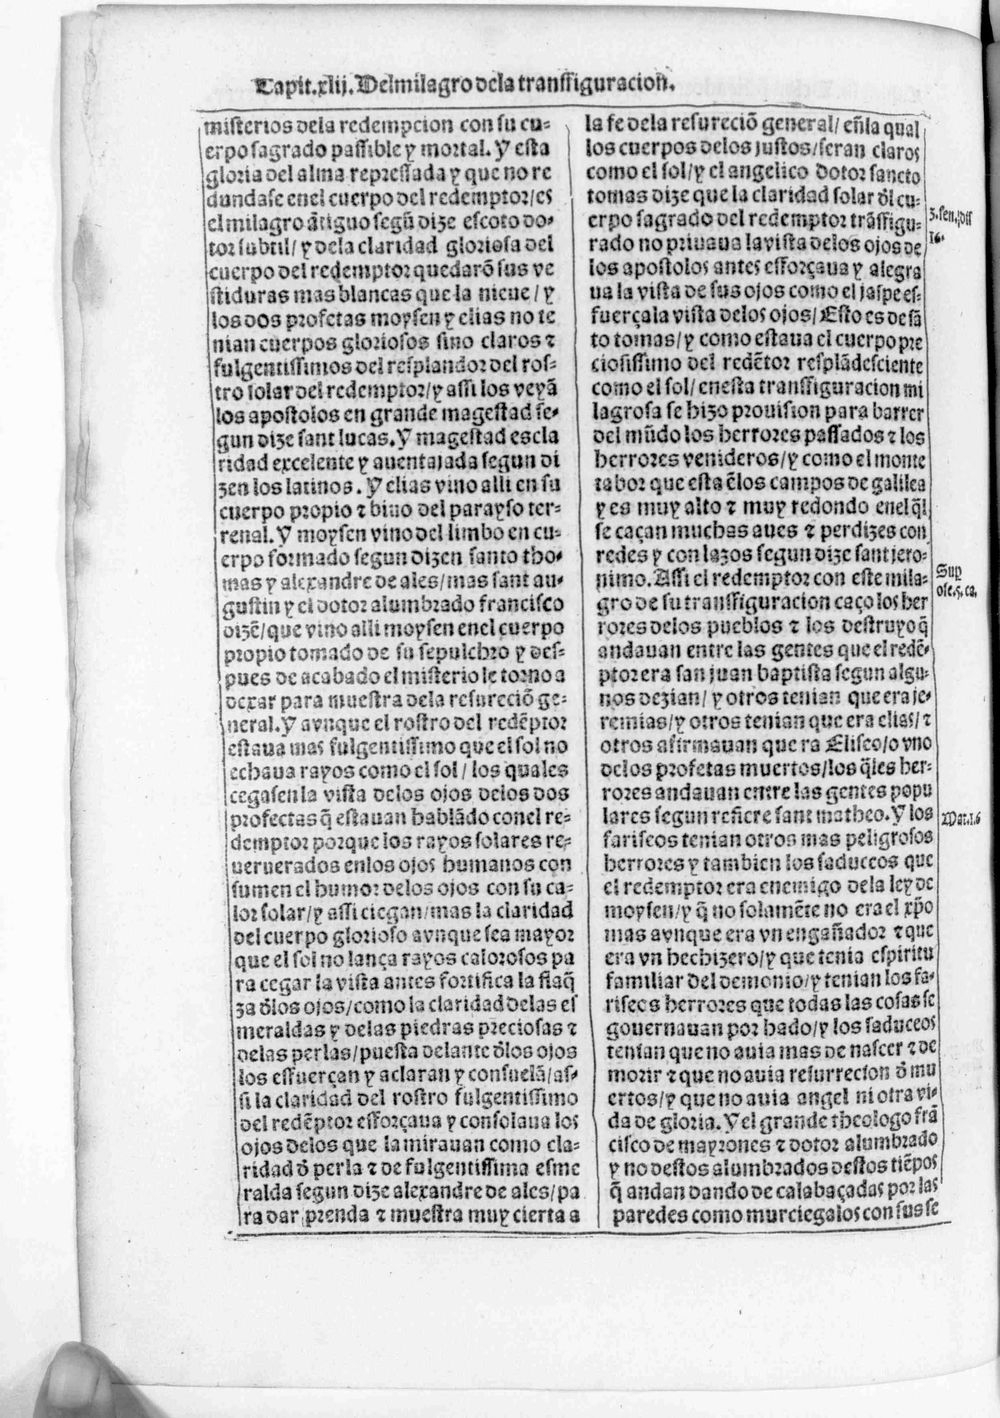 Capit.xlij. Del milagro dela transfiguracion.
misterios dela redempcion con su cu-
erpo sagrado passible y mortal. Y esta
gloria del alma repressada y que no re
dundase enel cuerpo del redemptor/es
el milagro ãtiguo segũ dize escoto do-
tor subtil/ y dela claridad gloriosa del
cuerpo del redemptor quedarõ sus ve
stiduras mas blancas que la nieue/ y
los dos profetas moysen y elias no te
nian cuerpos gloriosos sino claros ⁊
fulgentissimos del resplandor del ros-
tro solar del redemptor/y assi los veyã
los apostolos en grande magestad se-
gun dize sant lucas. Y magestad es cla
ridad excelente y auentajada segun di
zen los latinos. Y elias vino alli en su
cuerpo propio ⁊ bino del parayso ter-
renal. Y moysen vino del limbo en cu-
erpo formado segun dizen santo tho-
mas y alexandre de ales/mas sant au-
gustin y el dotor alumbrado francisco
dizẽ/que vino alli moysen enel cuerpo
propio tomado de su sepulchro y des-
pues de acabado el misterio le torno a
dexar para muestra dela resureciõ ge-
neral. Y avnque el rostro del redẽptor
estaua mas fulgentissimo que el sol no
echaua rayos como el sol/ los quales
cegasen la vista delos ojos delos dos
profectas q̃ estauan hablãdo conel re-
demptor porque los rayos solares re-
ueruerados enlos ojos humanos con
sumen el humor delos ojos con su ca-
lor solar/y assi ciegan/mas la claridad
del cuerpo glorioso avnque sea mayor
que el sol no lança rayos calorosos pa
ra cegar la vista antes fortifica la flaq̃
za dlos ojos/como la claridad delas es
meraldas y delas piedras preciosas ⁊
delas perlas/puesta delante dlos ojos
los esfuerçan y aclaran y consuelã/as-
si la claridad del rostro fulgentissimo
del redẽptor esforçaua y consolaua los
ojos delos que la mirauan como cla-
ridad d̃ perla ⁊ de fulgentissima esme
ralda segun dize alexandre de ales/pa
ra dar prenda ⁊ muestra muy cierta a
la fe dela resureciõ general/ eñla qual
los cuerpos delos justos/seran claros
como el sol/y el angelico dotor sancto
tomas dize que la claridad solar dl cu-
erpo sagrado del redemptor trãsfigu-
rado no priuaua la vista delos ojos de
los apostolos antes esforçaua y alegra
ua la vista de sus ojos como el jaspe es-
fuerça la vista delos ojos/ Esto es de sã
to tomas/y como estaua el cuerpo pre
ciosissimo del redẽtor resplãdesciente
como el sol/ enesta transfiguracion mi
lagrosa se hizo prouision para barrer
del mũdo los herrores passados ⁊ los
herrores venideros/y como el monte
tabor que esta ẽlos campos de galilea
y es muy alto ⁊ muy redondo enel q̃l
se caçan muchas aues ⁊ perdizes con
redes y con lazos segun dize sant jero-
nimo. Assi el redemptor con este mila-
gro de su transfiguracion caço los her
rores delos pueblos ⁊ los destruyo q̃
andauan entre las gentes que el redẽ-
ptor era san juan baptista segun algu-
nos dezian/ y otros tenian que era je-
remias/y otros tenian que era elias/ ⁊
otros afirmauan que ra Eliseo/o vno
delos profetas muertos/los q̃les her-
rores andauan entre las gentes popu
lares segun refiere sant matheo. Y los
fariseos tenian otros mas peligrosos
herrores y tambien los saduceos que
el redemptor era enemigo dela ley de
moysen/y q̃ no solamẽte no era el xp̃o
mas avnque era vn engañador ⁊ que
era vn hechizero/y que tenia espiritu
familiar del demonio/y tenian los fa-
riseos herrores que todas las cosas se
gouernauan por hado/y los saduceos
tenian que no auia mas de nascer ⁊ de
morir ⁊ que no auia resurrecion d̃ mu
ertos/y que no auia angel ni otra vi-
da de gloria. Y el grande theologo frã
cisco de mayrones ⁊ dotor alumbrado
y no destos alumbrados destos tiẽpos
q̃ andan dando de calabaçadas por las
paredes como murciegalos con sus se
3.sen.dis
16.
Sup
ose.5.ca.
Mat.16